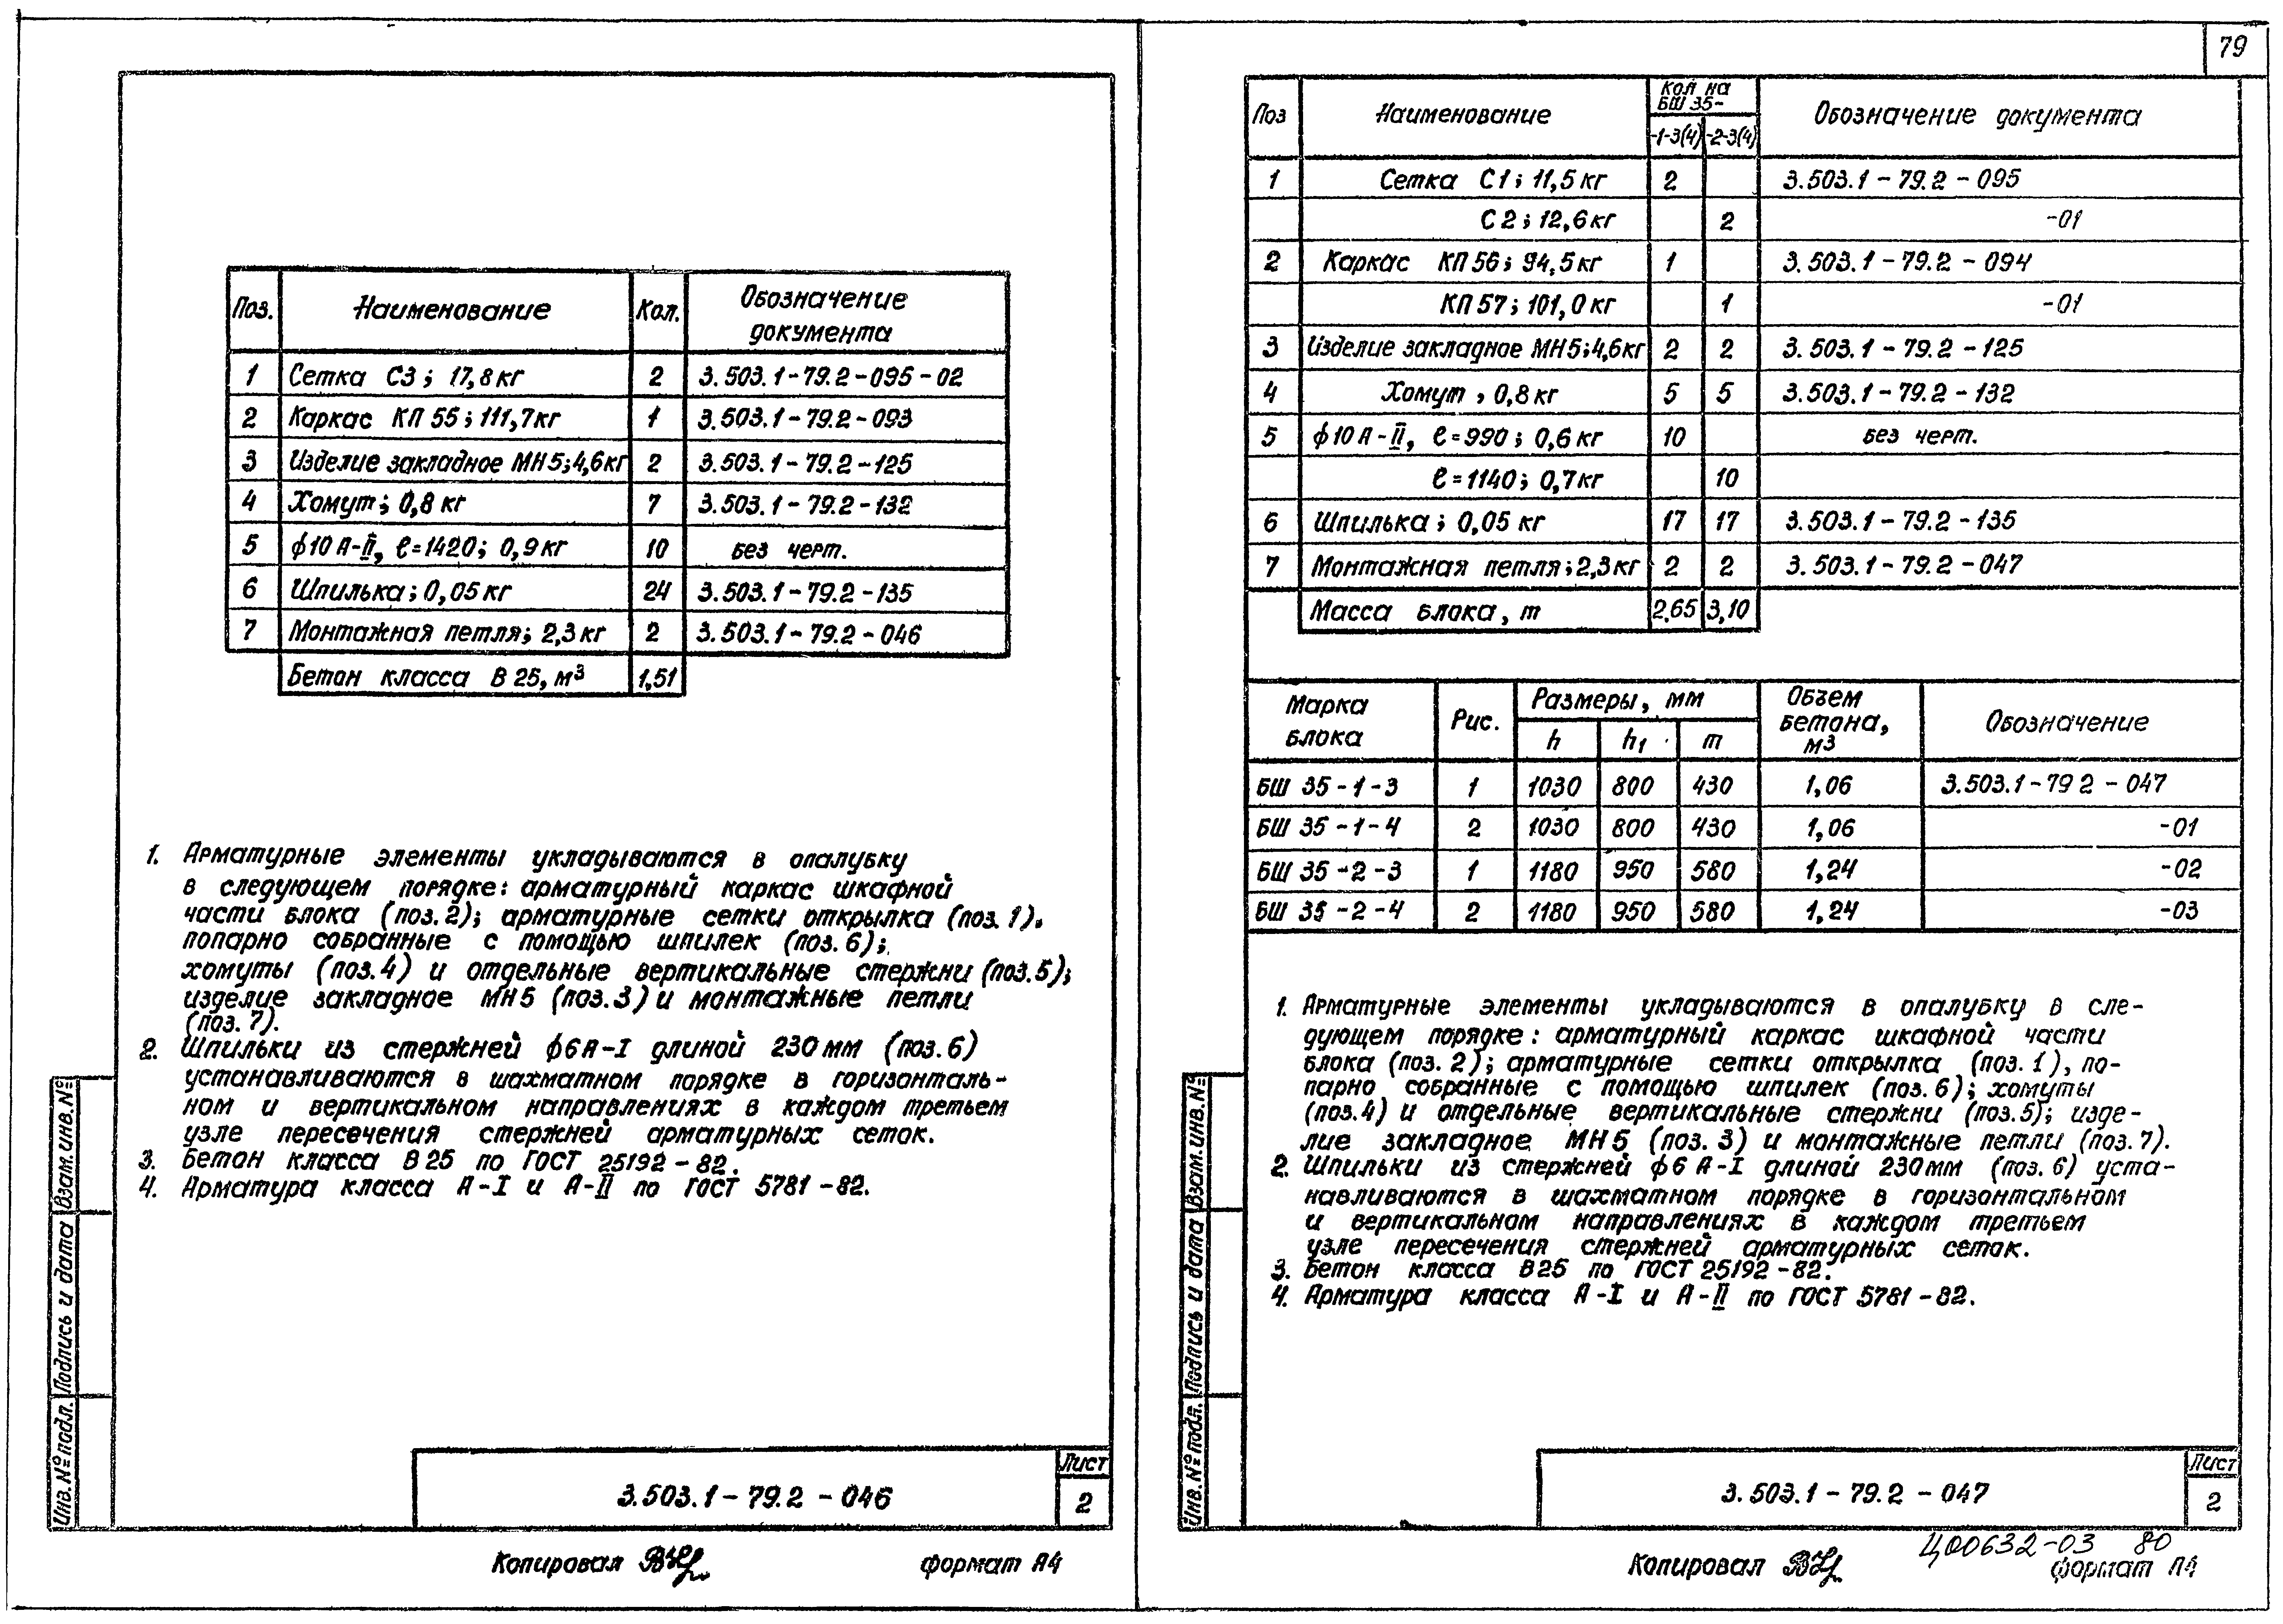 79
Поз. Наименование Кол. Обозначение документа
1 Сетка С3; 17,8кг 2 3.503.1-79.2-095-02
2 Каркас КП 55; 111,7кг 1 3.503.1-79.2-093
3 Изделие закладное МН5;4,6кг 2 3.503.1-79.2-125
4 Хомут; 0,8 кг 7 3.503.1-79.2-132
5 ф10 А-II, ℓ=1420; 0,9 кг 10 без черт.
6 Шпилька; 0,05 кг 24 3.503.1-79.2-135
7 Монтажная петля; 2,3 кг 2 3.503.1-79.2-046
Бетон класса В 25, м³ 1,51
1. Арматурные элементы укладываются в опалубку
в следующем порядке: арматурный каркас шкафной
части блока (поз. 2); арматурные сетки открылка (поз. 1),
попарно собранные с помощью шпилек (поз. 6);
хомуты (поз. 4) и отдельные вертикальные стержни (поз. 5);
изделие закладное МН5 (поз. 3) и монтажные петли
(поз. 7).
2. Шпильки из стержней ф6А-I длиной 230 мм (поз. 6)
устанавливаются в шахматном порядке в горизонталь-
ном и вертикальном направлениях в каждом третьем
узле пересечения стержней арматурных сеток.
3. Бетон класса В25 по ГОСТ 25192-82.
4. Арматура класса А-I и А-II по ГОСТ 5781-82.
Инв.№ подл. Подпись и дата Взам.инв.№
3.503.1-79.2-046
Лист
2
Копировал
формат А4
Поз Наименование Кол на БШ 35- Обозначение документа
-1-3(4) -2-3(4)
1 Сетка С1; 11,5 кг 2 3.503.1-79.2-095
С2; 12,6 кг 2 -01
2 Каркас КП 56; 94,5 кг 1 3.503.1-79.2-094
КП 57; 101,0 кг 1 -01
3 Изделие закладное МН5;4,6кг 2 2 3.503.1-79.2-125
4 Хомут, 0,8 кг 5 5 3.503.1-79.2-132
5 ф10 А-II, ℓ=990; 0,6 кг 10 без черт.
ℓ=1140; 0,7кг 10
6 Шпилька; 0,05 кг 17 17 3.503.1-79.2-135
7 Монтажная петля; 2,3 кг 2 2 3.503.1-79.2-047
Масса блока, т 2,65 3,10
Марка блока Рис. Размеры, мм Объем бетона, м3 Обозначение
h h1 m
БШ 35-1-3 1 1030 800 430 1,06 3.503.1-79 2-047
БШ 35-1-4 2 1030 800 430 1,06 -01
БШ 35-2-3 1 1180 950 580 1,24 -02
БШ 35-2-4 2 1180 950 580 1,24 -03
1. Арматурные элементы укладываются в опалубку в сле-
дующем порядке: арматурный каркас шкафной части
блока (поз. 2); арматурные сетки открылка (поз. 1), по-
парно собранные с помощью шпилек (поз. 6); хомуты
(поз. 4) и отдельные вертикальные стержни (поз. 5); изде-
лие закладное МН5 (поз. 3) и монтажные петли (поз. 7).
2. Шпильки из стержней ф6 А-I длиной 230мм (поз. 6) уста-
навливаются в шахматном порядке в горизонтальном
и вертикальном направлениях в каждом третьем
узле пересечения стержней арматурных сеток.
3. Бетон класса В25 по ГОСТ 25192-82.
4. Арматура класса А-I и А-II по ГОСТ 5781-82.
Инв.№ подл. Подпись и дата Взам.инв.№
3.503.1-79.2-047
Лист
2
Копировал
Ц00632-03 80
формат А4